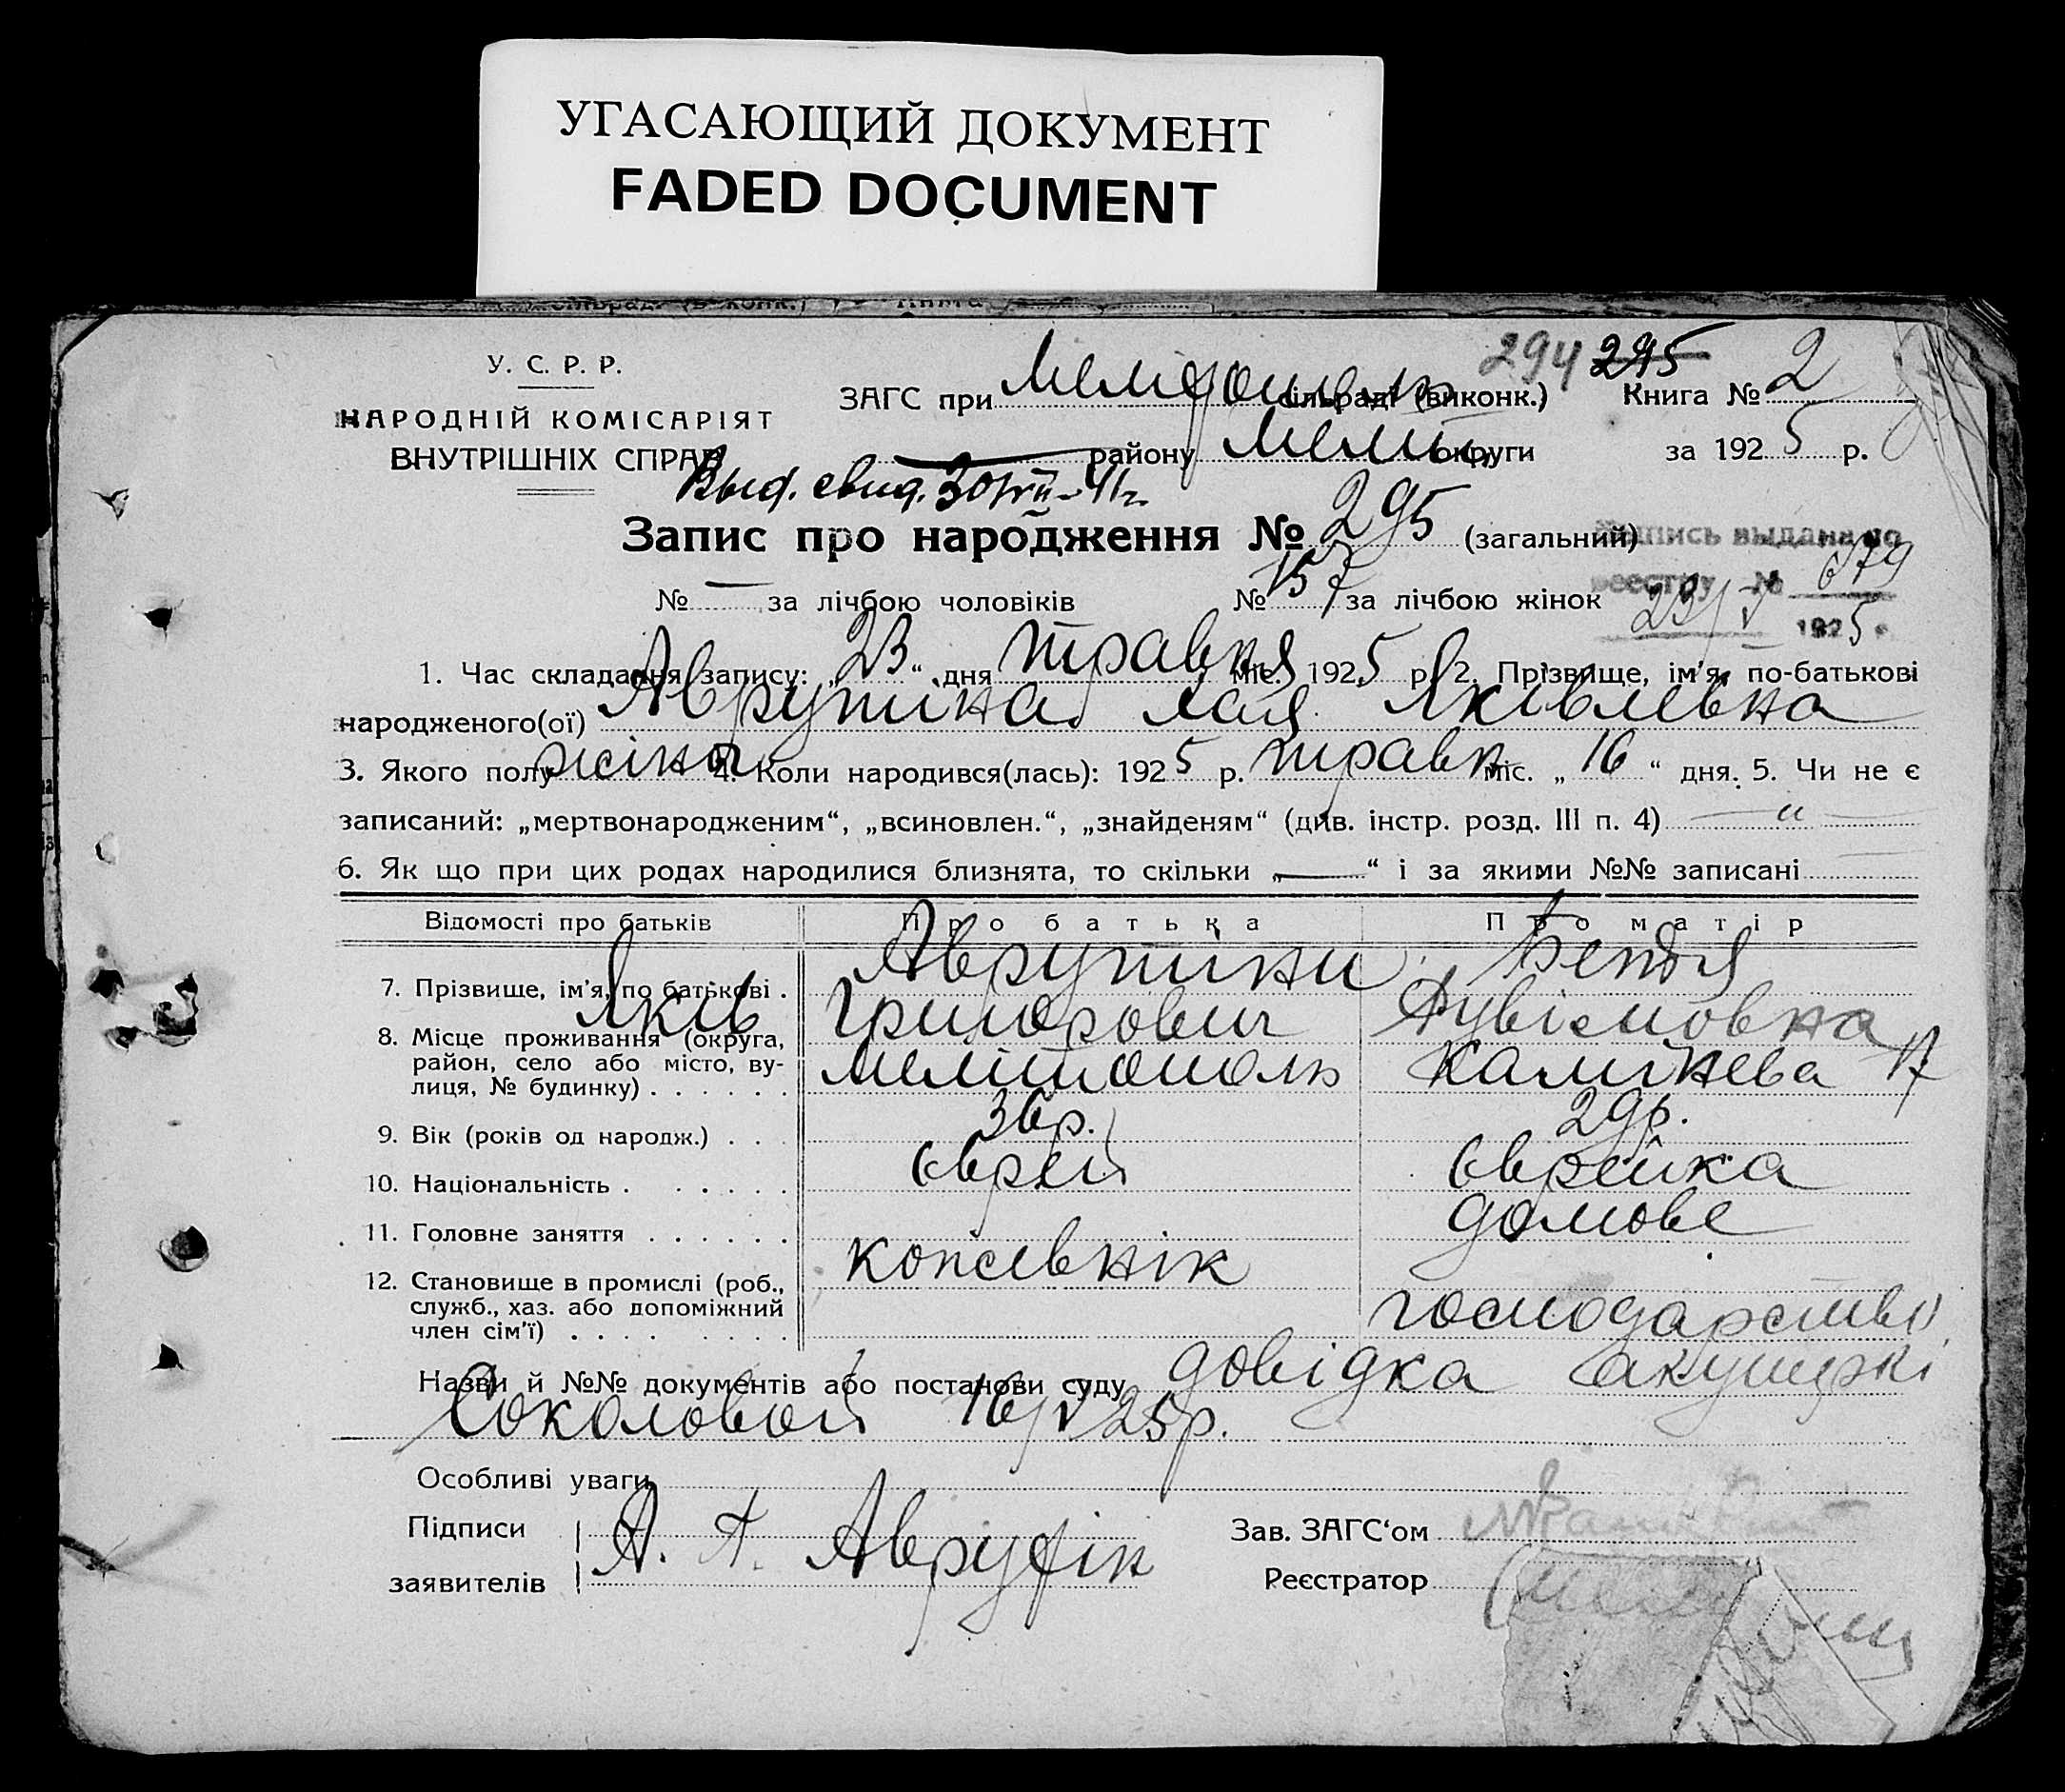 УГАСАЮЩИЙ ДОКУМЕНТ
FADED DOCUMENT
294 295
У. С. Р. Р.
НАРОДНІЙ КОМІСАРІЯТ
ВНУТРІШНІХ СПРАВ
ЗАГС при сільраді (виконк.) Книга № 2
района Меліт. округи за 1925 р.
Выд. свид. 30/VII-41г.
Запис про народження № 295 (загальний)
Запись выдана по
реестру № 679
23/V 1925 г.
№ — за лічбою чоловіків № 157 за лічбою жінок
1. Час складання запису: „23“ дня травня міс. 1925 р. 2. Прізвище, ім'я, по-батькові
народженого(ої) Аврутіна Яківлевна
3. Якого полу жіноч 4. Коли народився(лась): 1925 р. травн міс. „16“ дня. 5. Чи не є
записаний: „мертвонародженим“, „всиновлен.“, „знайденям“ (див. інстр. розд. III п. 4) — „ —
6. Як що при цих родах народилися близнята, то скільки „——“ і за якими №№ записані
Відомості про батьків Про батька Про матір
7. Прізвище, ім'я, по батькові . Аврутини Бетья
Яків Григорович Рувімовна
8. Місце проживання (округа,
район, село або місто, ву-
лиця, № будинку) . . . . . . Мелітополь Калинева 17
9. Вік (років од народж.) . . . 36р. 29р.
10. Національність . . . . . . Єврей Єврейка
11. Головне заняття . . . . . . кожевнік домове
господарство
12. Становище в промислі (роб.,
служб., хаз. або допоміжний
член сім'ї) . . . . . . . .
Назви й №№ документів або постанови суду довідка акушеркі
Соколовой 16/V 25р.
Особливі уваги
Підписи
заявителів А. Аврутін
Зав. ЗАГС'ом
Реєстратор